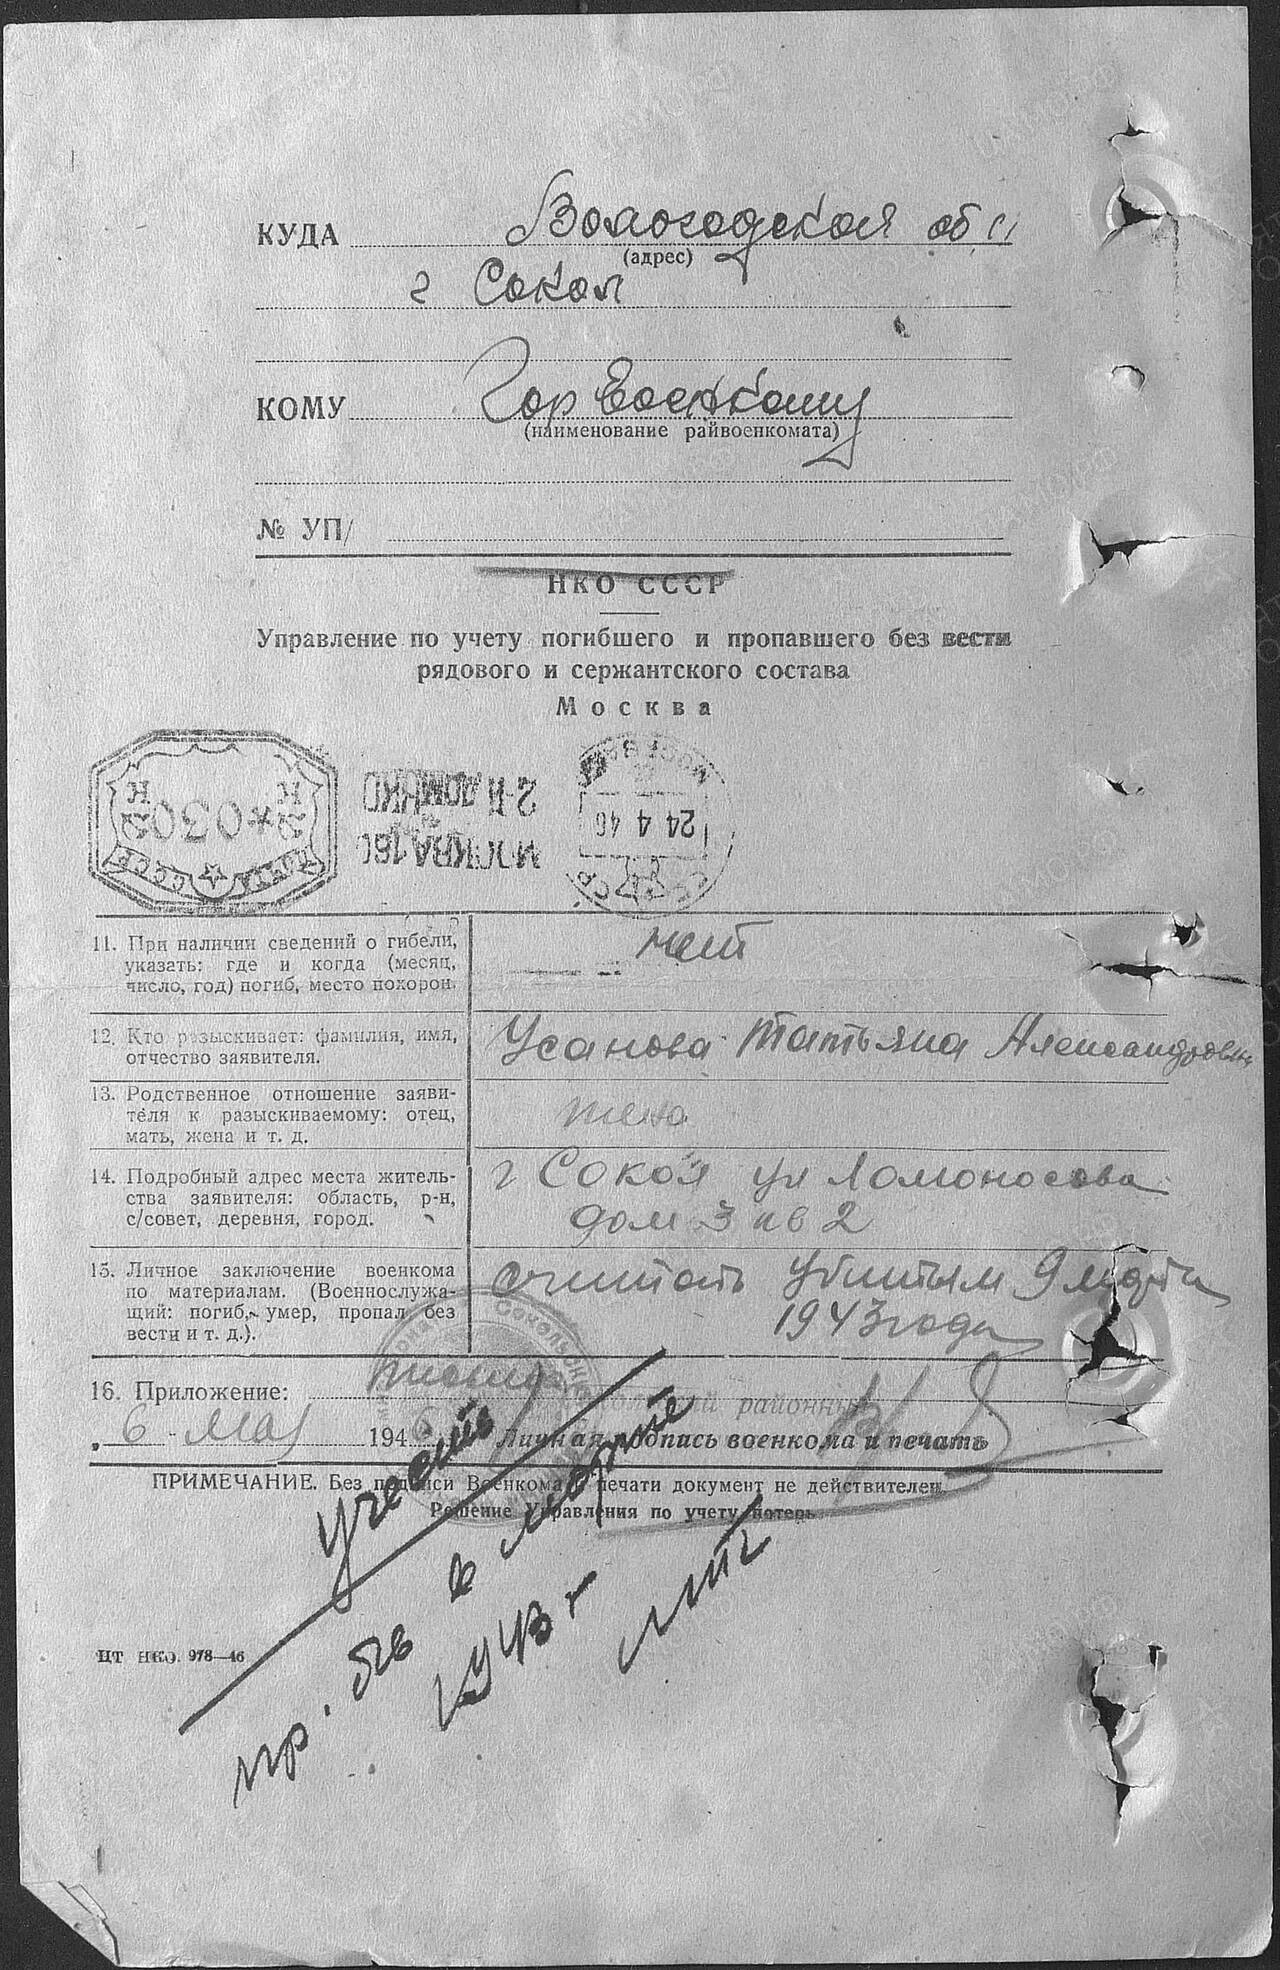 КУДА Вологодская обл
(адрес)
г Сокол
КОМУ Горвоенкому
(наименование райвоенкомата)
№ УП/
НКО СССР
Управление по учету погибшего и пропавшего без вести
рядового и сержантского состава
Москва
СССР 030
МОСКВА 160
2-Й ДОМ НКО
МОСКВА
24 4 46
СССР
11. При наличии сведений о гибели,
указать: где и когда (месяц,
число, год) погиб, место похорон.
нет
12. Кто разыскивает: фамилия, имя,
отчество заявителя.
Усанова Татьяна Александровна
13. Родственное отношение заяви-
теля к разыскиваемому: отец,
мать, жена и т. д.
жена
14. Подробный адрес места житель-
ства заявителя: область, р-н,
с/совет, деревня, город.
г Сокол ул Ломоносова
дом 3 кв 2
15. Личное заключение военкома
по материалам. (Военнослужа-
щий: погиб, умер, пропал без
вести и т. д.).
считать убитым 9 марта
1943 года
16. Приложение:
районный
6 мая 1946
Личная подпись военкома и печать
ПРИМЕЧАНИЕ. Без подписи Военкома и печати документ не действителен.
Решение Управления по учету потерь
Учесть
пр. б/в в марте
1943 г
ЦТ НКО. 978—46